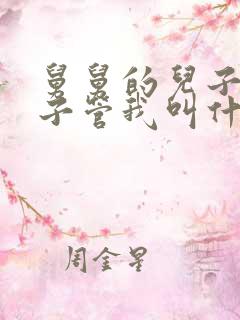 舅舅的兒子
子管我叫什
周金星